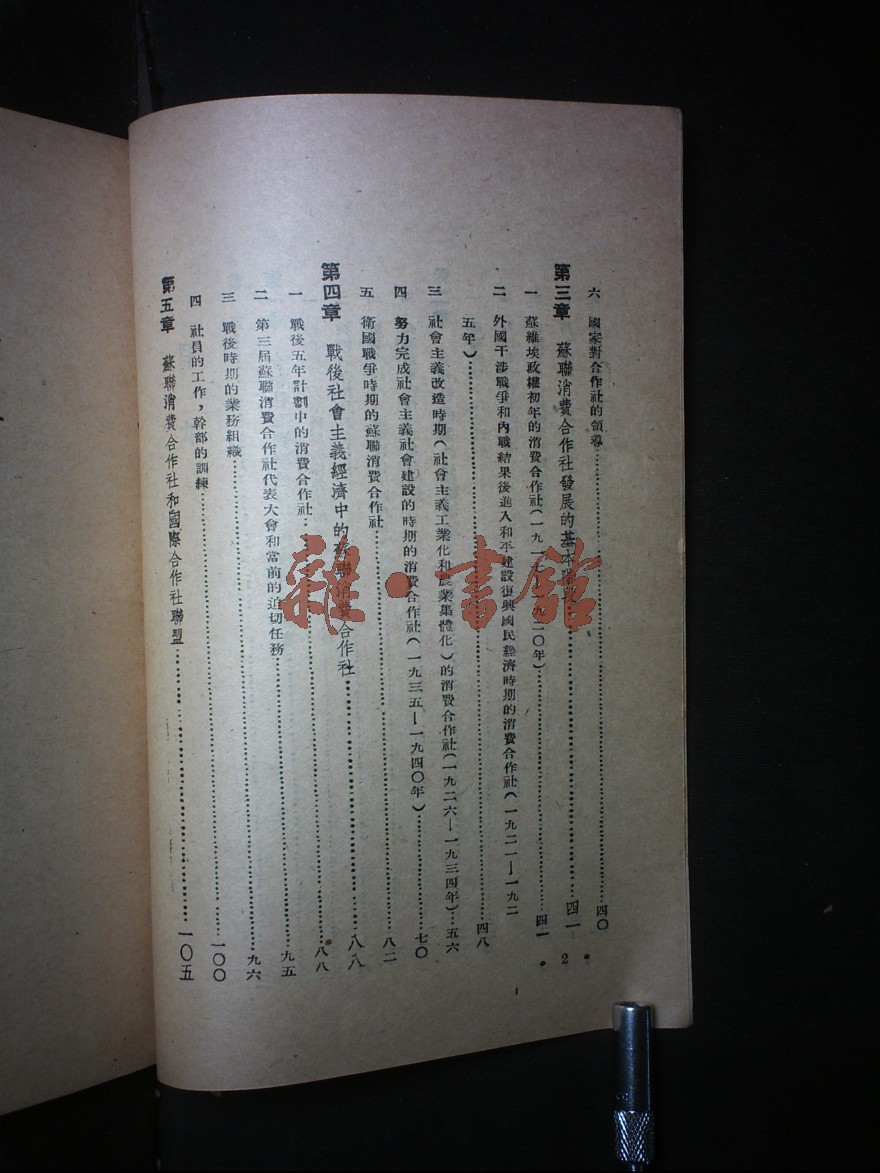 六　國家對合作社的領導……四〇
第三章　蘇聯消費合作社發展的基本階段……四一
一　蘇維埃政權初年的消費合作社(一九一七—一九二〇年)……四一
二　外國干涉戰爭和內戰結果後進入和平建設復興國民經濟時期的消費合作社(一九二一—一九二
五年)……四八
三　社會主義改造時期(社會主義工業化和農業集體化)的消費合作社(一九二六—一九三四年)……五六
四　努力完成社會主義社會建設的時期的消費合作社(一九三五—一九四〇年)……七〇
五　衛國戰爭時期的蘇聯消費合作社……八二
第四章　戰後社會主義經濟中的蘇聯消費合作社……八八
一　戰後五年計劃中的消費合作社……八八
二　第三屆蘇聯消費合作社代表大會和當前的迫切任務……九五
三　戰後時期的業務組織……九六
四　社員的工作，幹部的訓練……一〇〇
第五章　蘇聯消費合作社和國際合作社聯盟……一〇五
• 2 •
雜·書館